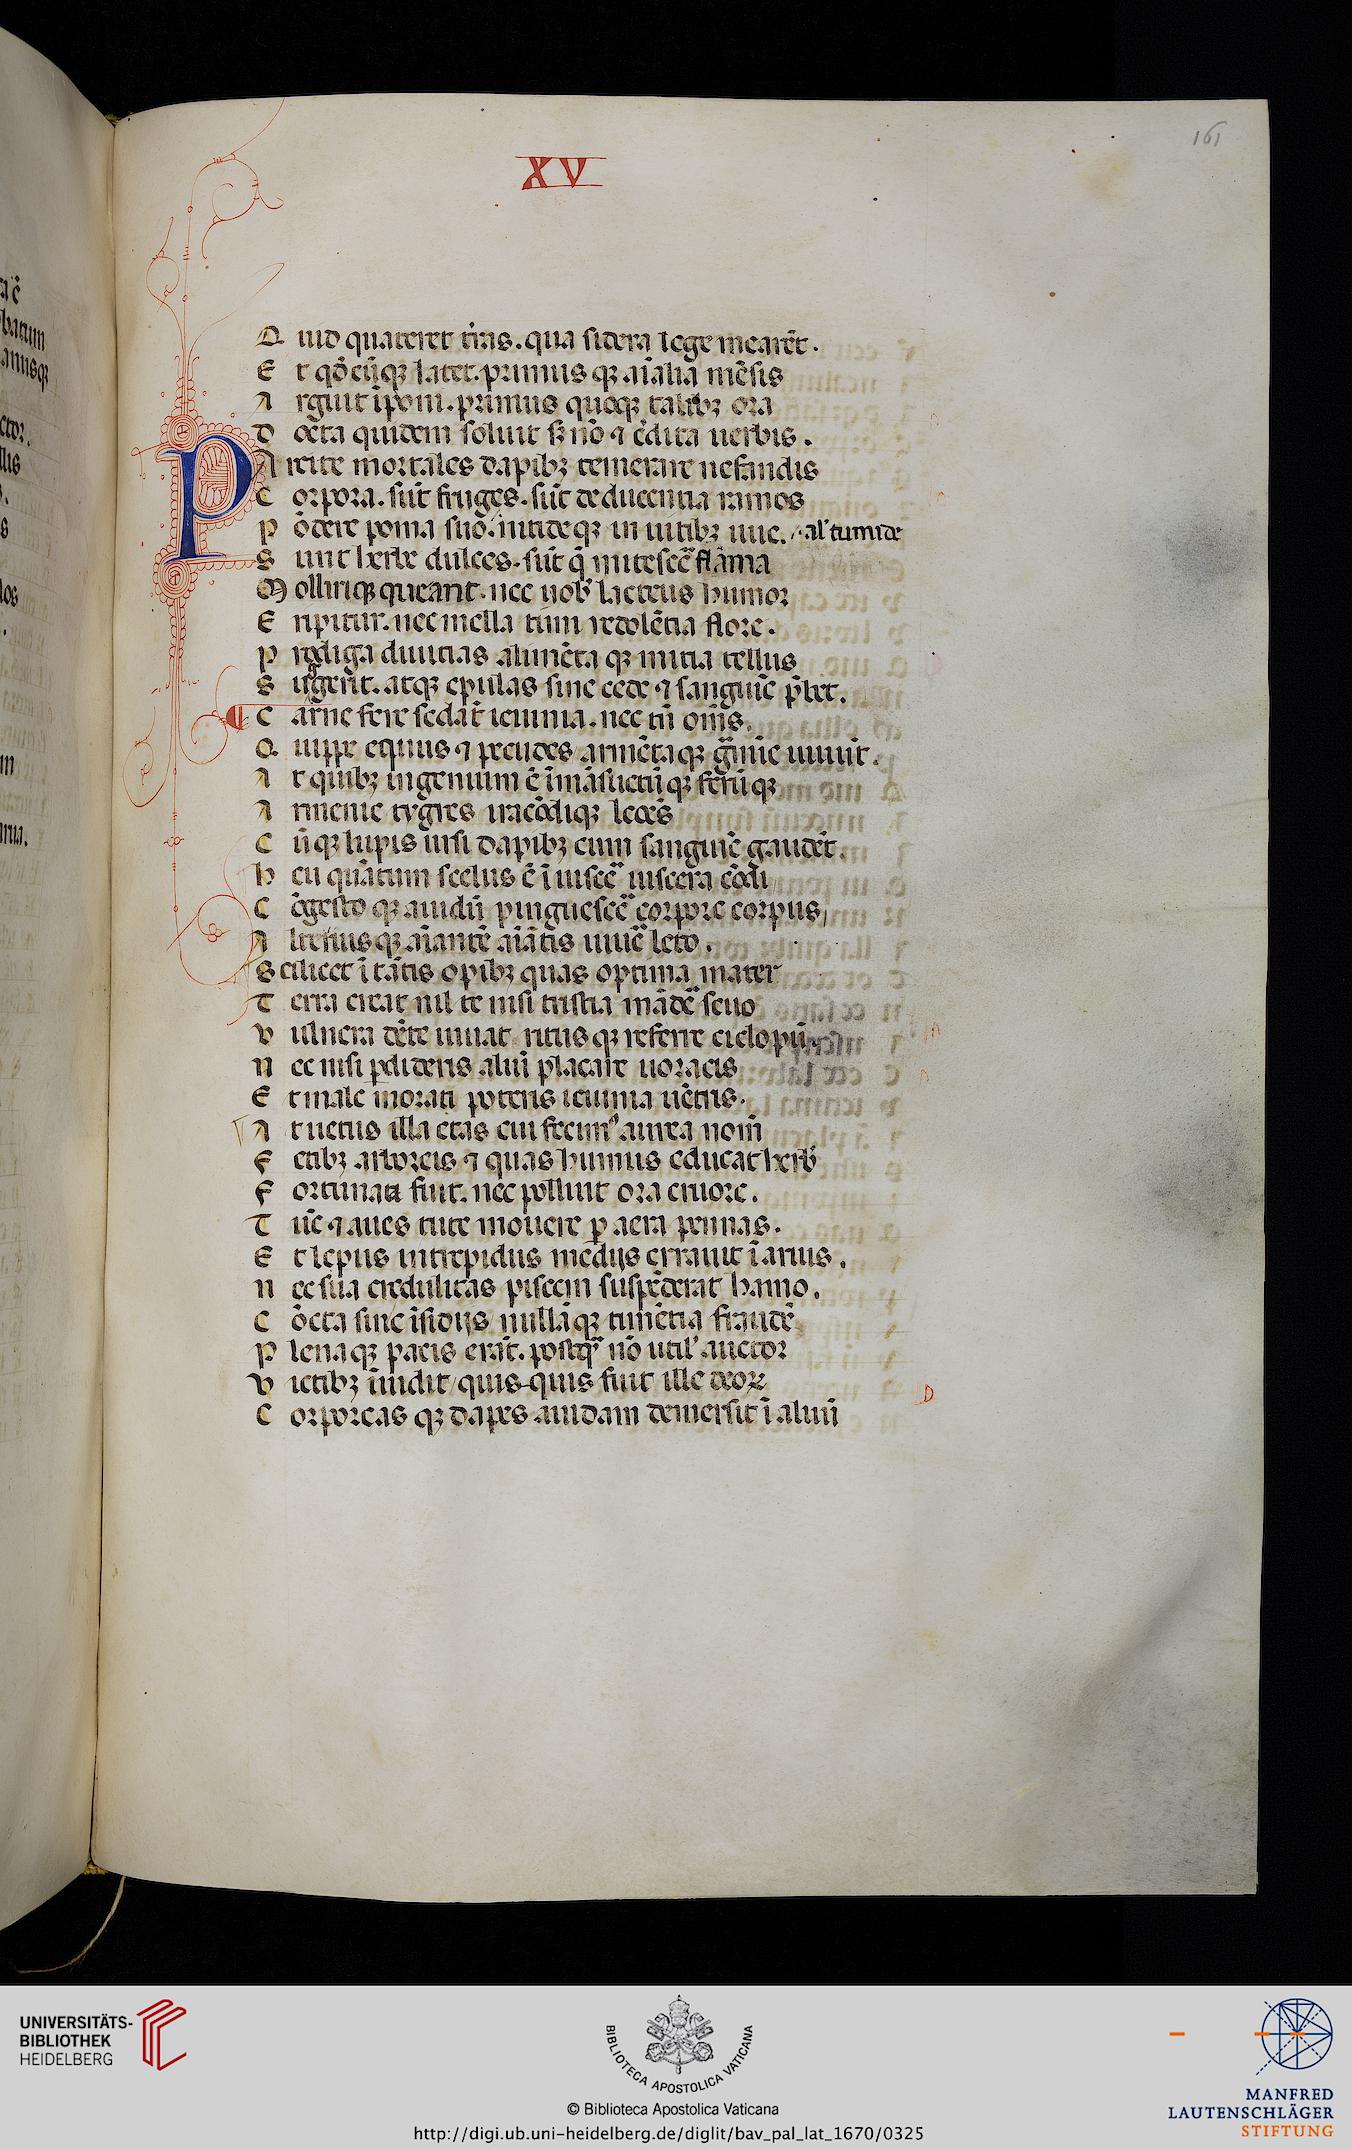 161
XV
Q uid quateret t̄ras. qua sidera lege mearēt.
E t qđcūqꝫ latet. primus qꝫ aīalia mēsis
A rguit īponi. primus quoqꝫ talibꝫ ora
D octa quidem soluit sꝫ nō ⁊ c̄dita uerbis.
P Arcite mortales dapibꝫ temerare nefandis
C orpora. sūt fruges. sūt deducentia ramos
P ōdere poma suo. nitideqꝫ in uitibꝫ uue. al' tumide
S unt herbe dulces. sūt q̄ mitescē flāma
M olliriqꝫ queant. nec uob' lacteus humor
E ripitur. nec mella timi redolētia flore.
P rodiga diuitias alimēta qꝫ mitia tellus
S uggerit. atqꝫ epulas sine cede ⁊ sanguīe p̄bet.
C arne fere sedāt ieiunia. nec tn̄ om̄s.
Q uippe equus ⁊ pecudes armēta qꝫ gmīe uiuūt.
A t quibꝫ ingenium ē īmāsuetū qꝫ ferūqꝫ
A rmenie tygres iracōdiqꝫ leōes
C ūqꝫ lupis ursi dapibꝫ cum sanguīe gaudēt.
h eu quātum scelus ē ī uiscē uiscera cōdi
C ōgesto qꝫ auidū pinguescē corpore corpus
A lterius qꝫ aīantē aīātis uiuē leto.
S cilicet ī tātis opibꝫ quas optima mater
T erra creat nil te nisi tristia mādē seuo
V ulnera dēte iuuat ritus qꝫ referre ciclopū.
N ec nisi p̄dideris aliū placare uoracis
E t male morati poteris ieiunia uētris.
A t uetus illa etas cui fecim' aurea nom̄
F etibꝫ arboreis ⁊ quas humus educat herb'
F ortunata fuit. nec polluit ora cruore.
T ūc ⁊ aues tute mouere p aera pennas.
E t lepus intrepidus medijs errauit ī aruis.
N ec sua credulitas piscem suspēderat hamo.
C ōcta sine īsidijs nullāqꝫ timētia fraudē
P lenaqꝫ pacis erāt. postqȝ nō util' auctor
V ictibꝫ īuidit quis-quis fuit ille deoꝝ
C orporeas qꝫ dapes auidam demersit ī aluū
UNIVERSITÄTS-
BIBLIOTHEK
HEIDELBERG
BIBLIOTECA APOSTOLICA VATICANA
© Biblioteca Apostolica Vaticana
http://digi.ub.uni-heidelberg.de/diglit/bav_pal_lat_1670/0325
MANFRED
LAUTENSCHLÄGER
STIFTUNG